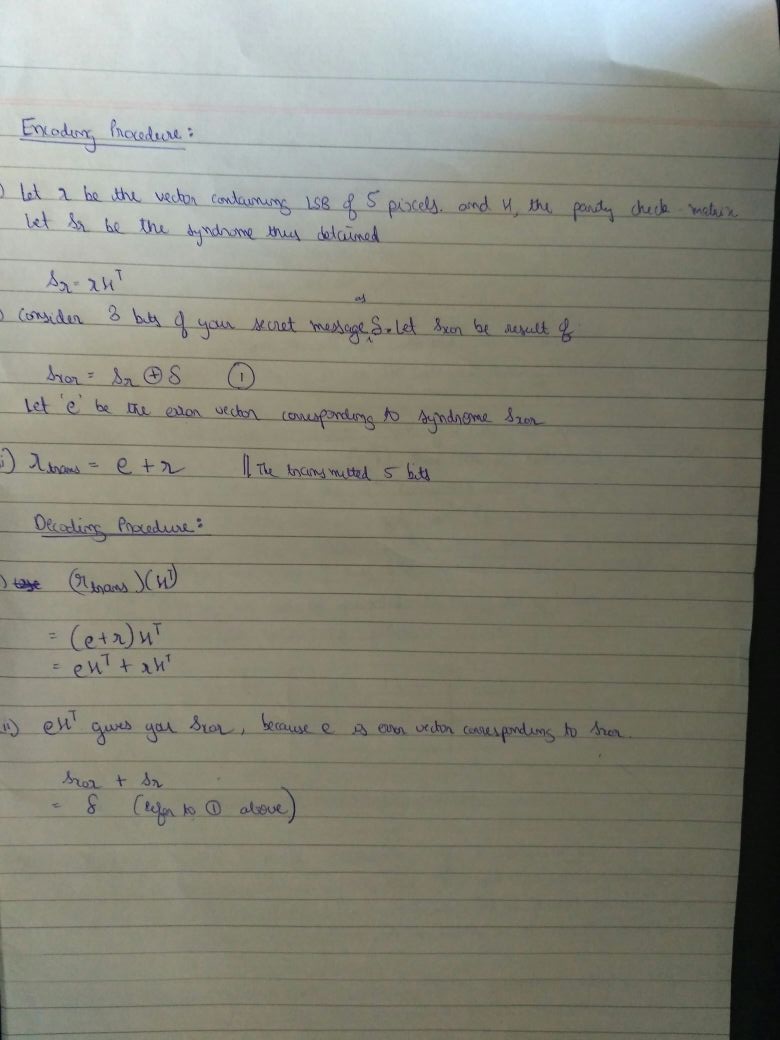 Encoding Procedure:
) Let r be the vector containing LSB of 5 pixels. and H, the parity check matrix
Let Sr be the syndrome thus obtained
Sr = rHᵀ
) Consider 3 bits of your secret message, as S. Let Sxor be result of
Sxor = Sr ⊕ S ①
Let 'e' be the error vector corresponding to syndrome Sxor
i) rtrans = e + r // The transmitted 5 bits
Decoding Procedure:
) (rtrans)(Hᵀ)
= (e+r)Hᵀ
= eHᵀ + rHᵀ
ii) eHᵀ gives you Sxor, because e is error vector corresponding to Sxor.
Sxor + Sr
= S (refer to ① above)